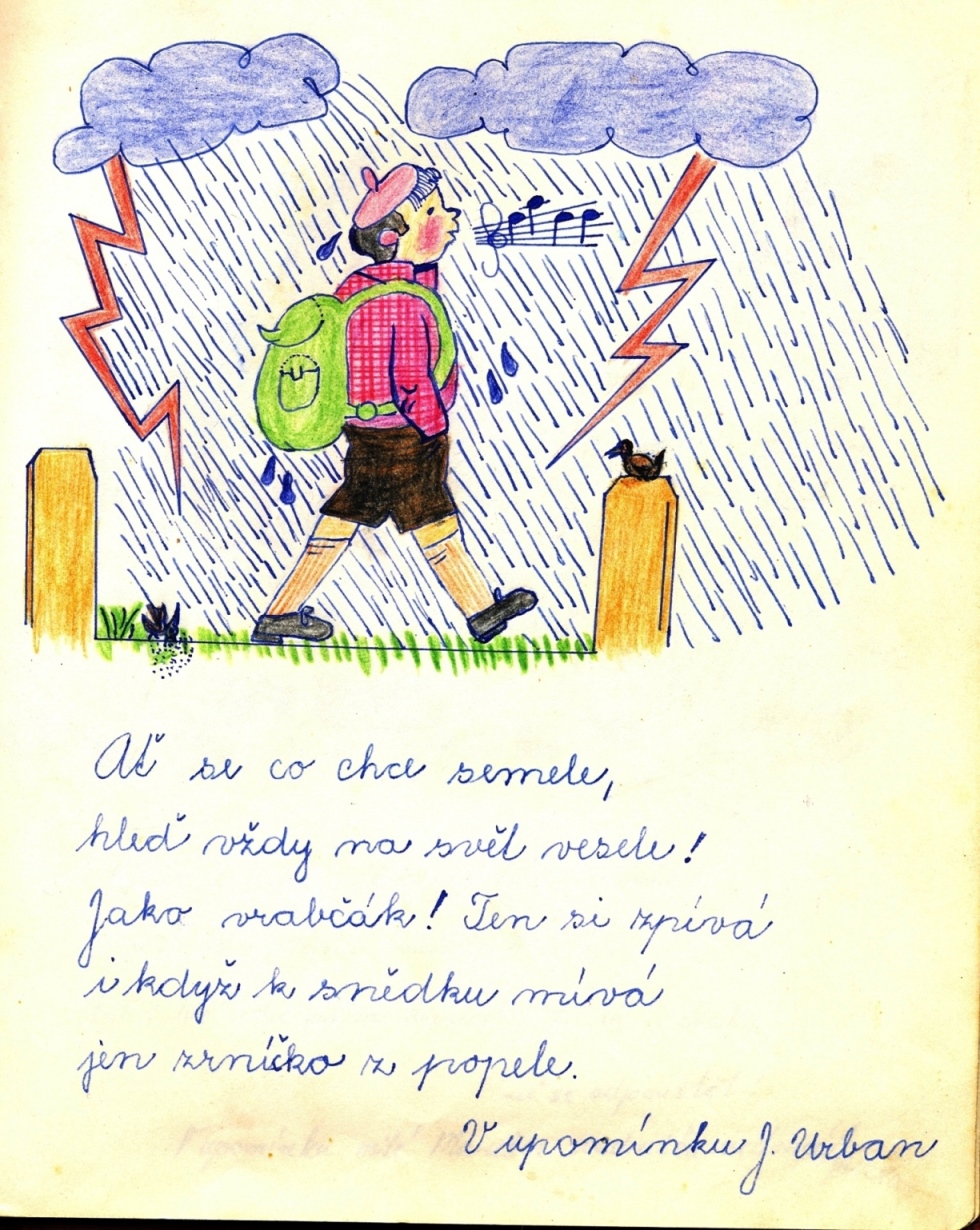 Ať se co chce semele,
hleď vždy na svět vesele!
Jako vrabčák! Ten si zpívá
i když k snědku mívá
jen zrníčko z popele.
V upomínku J. Urban